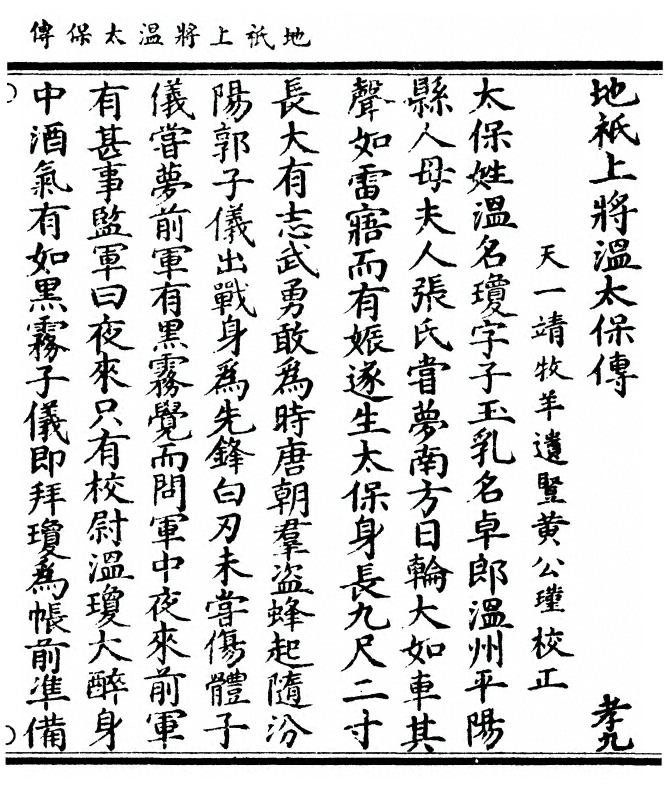 地祇上將溫太保傳
地祇上將溫太保傳
孝九
天一靖牧羊遺豎黃公瑾校正
太保姓溫名瓊字子玉乳名卓郎溫州平陽
縣人母夫人張氏嘗夢南方日輪大如車其
聲如雷寤而有娠遂生太保身長九尺二寸
長大有志武勇敢爲時唐朝羣盜蜂起隨汾
陽郭子儀出戰身爲先鋒白刃未嘗傷體子
儀嘗夢前軍有黑霧覺而問軍中夜來前軍
有甚事監軍曰夜來只有校尉溫瓊大醉身
中酒氣有如黑霧子儀即拜瓊爲帳前準備